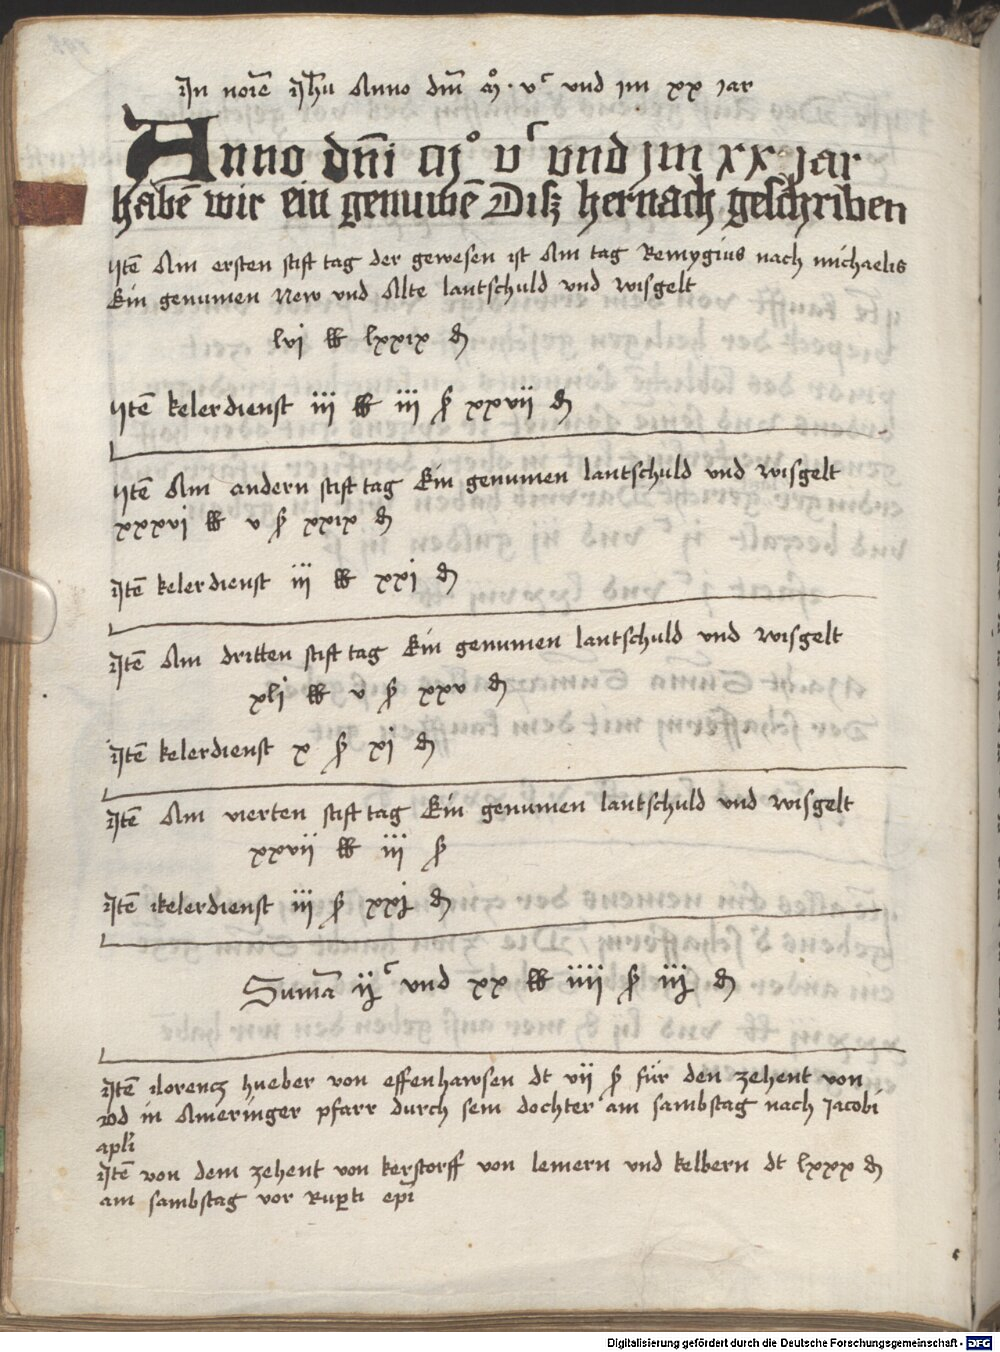 In noĩe Jhũ Anno dñi mͦ · vᶜ und jm xx jar
Anno dñi mͦ vᶜ vnd jm xx jar
habẽ wir ein genuwẽ Disz hernach geschriben
Itẽ Am ersten stift tag der gewesen ist Am tag Remygius nach michaelis
Ein genumen New vnd Alte lantschuld vnd wisgelt
lvj ℔ lxxix ₰
Itẽ kelerdienst iii ℔ iii ß xxvii ₰
Itẽ Am andern stift tag Ein genumen lantschuld vnd wisgelt
xxxvj ℔ v ß xxix ₰
Itẽ kelerdienst iii ℔ xxj ₰
Itẽ Am dritten stift tag Ein genumen lantschuld vnd wisgelt
xlj ℔ v ß xxv ₰
Itẽ kelerdienst x ß xj ₰
Itẽ Am vierten stift tag Ein genumen lantschuld vnd wisgelt
xxvii ℔ iii ß
Itẽ kelerdienst iii ß xxj ₰
Sum̃a ijᶜ vnd xx ℔ iiii ß iij ₰
Itẽ lorencz hueber von effenhawsen dt vii ß für den zehent von
wd in Ameringer pfarr durch sein dochter am sambstag nach Jacobi
apl̃i
Itẽ von dem zehent von kerstorff von lemern vnd kelbern dt lxxx ₰
am sambstag vor Rup̱ti ep̃i
Digitalisierung gefördert durch die Deutsche Forschungsgemeinschaft - DFG